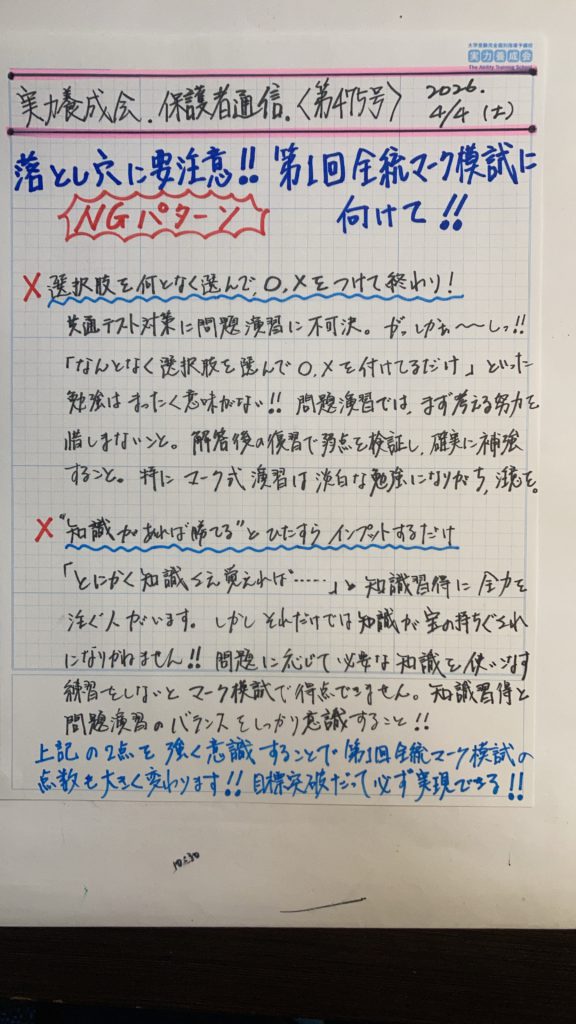 大学受験完全個別指導予備校
実力養成会
The Ability Training School
実力養成会.保護者通信.〈第475号〉
2026.
4/4(土)
落とし穴に要注意!! 第1回全統マーク模試に
NGパターン
向けて!!
× 選択肢を何となく選んで、○,×をつけて終わり!
共通テスト対策に問題演習に不可決。がっしかぁ〜〜しっ!!
「なんとなく選択肢を選んで○,×を付けてるだけ」といった
勉強はまったく意味がない!! 問題演習では、まず考える努力を
惜しまないこと。解答後の復習で弱点を検証し、確実に補強
すること。特にマーク式演習は淡白な勉強になりがち,注意を。
× "知識があれば勝てる"とひたすらインプットするだけ
「とにかく知識さえ覚えれば……」と知識習得に全力を
注ぐ人がいます。しかしそれだけでは知識が宝の持ちぐされ
になりかねません!! 問題に応じて必要な知識を使いこなす
練習をしないとマーク模試で得点できません。知識習得と
問題演習のバランスをしっかり意識すること!!
上記の2点を強く意識することで第1回全統マーク模試の
点数も大きく変わります!! 目標突破だって必ず実現できる!!